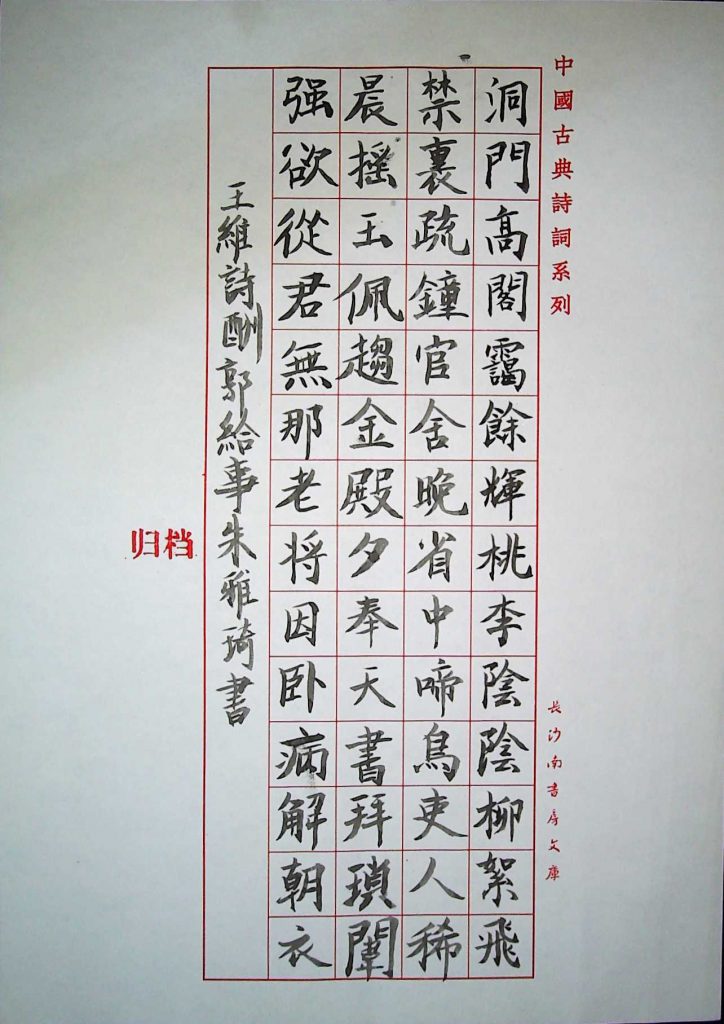 中國古典詩詞系列
長沙南書房文庫
洞門高閣靄餘輝桃李陰陰柳絮飛
禁裏疏鐘官舍晚省中啼鳥吏人稀
晨摇玉佩趨金殿夕奉天書拜瑣闈
强欲從君無那老将因卧病解朝衣
王維詩酬郭給事朱雅琦書
归档